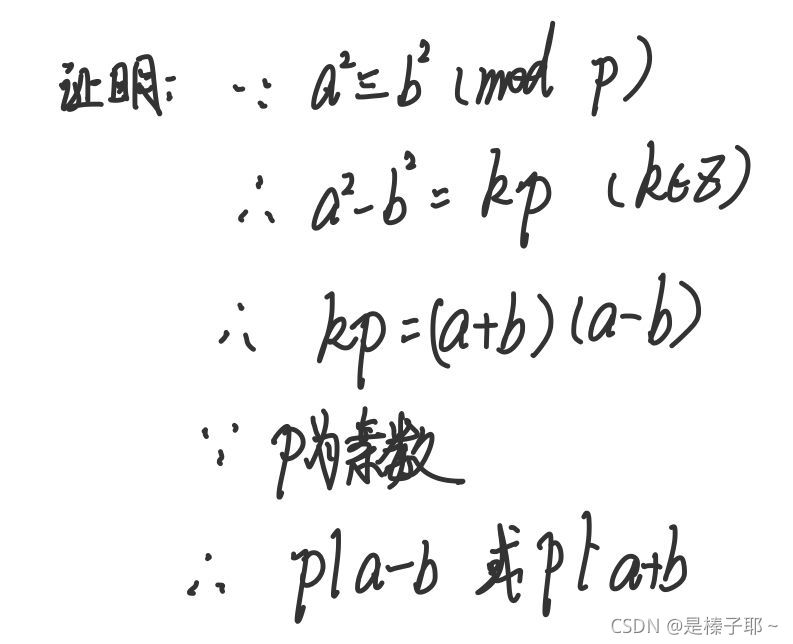 证明: ∵ a² ≡ b² (mod p)
∴ a² - b² = kp (k∈Z)
∴ kp = (a+b)(a-b)
∵ p为素数
∴ p|a-b 或 p|a+b
CSDN @是榛子耶~